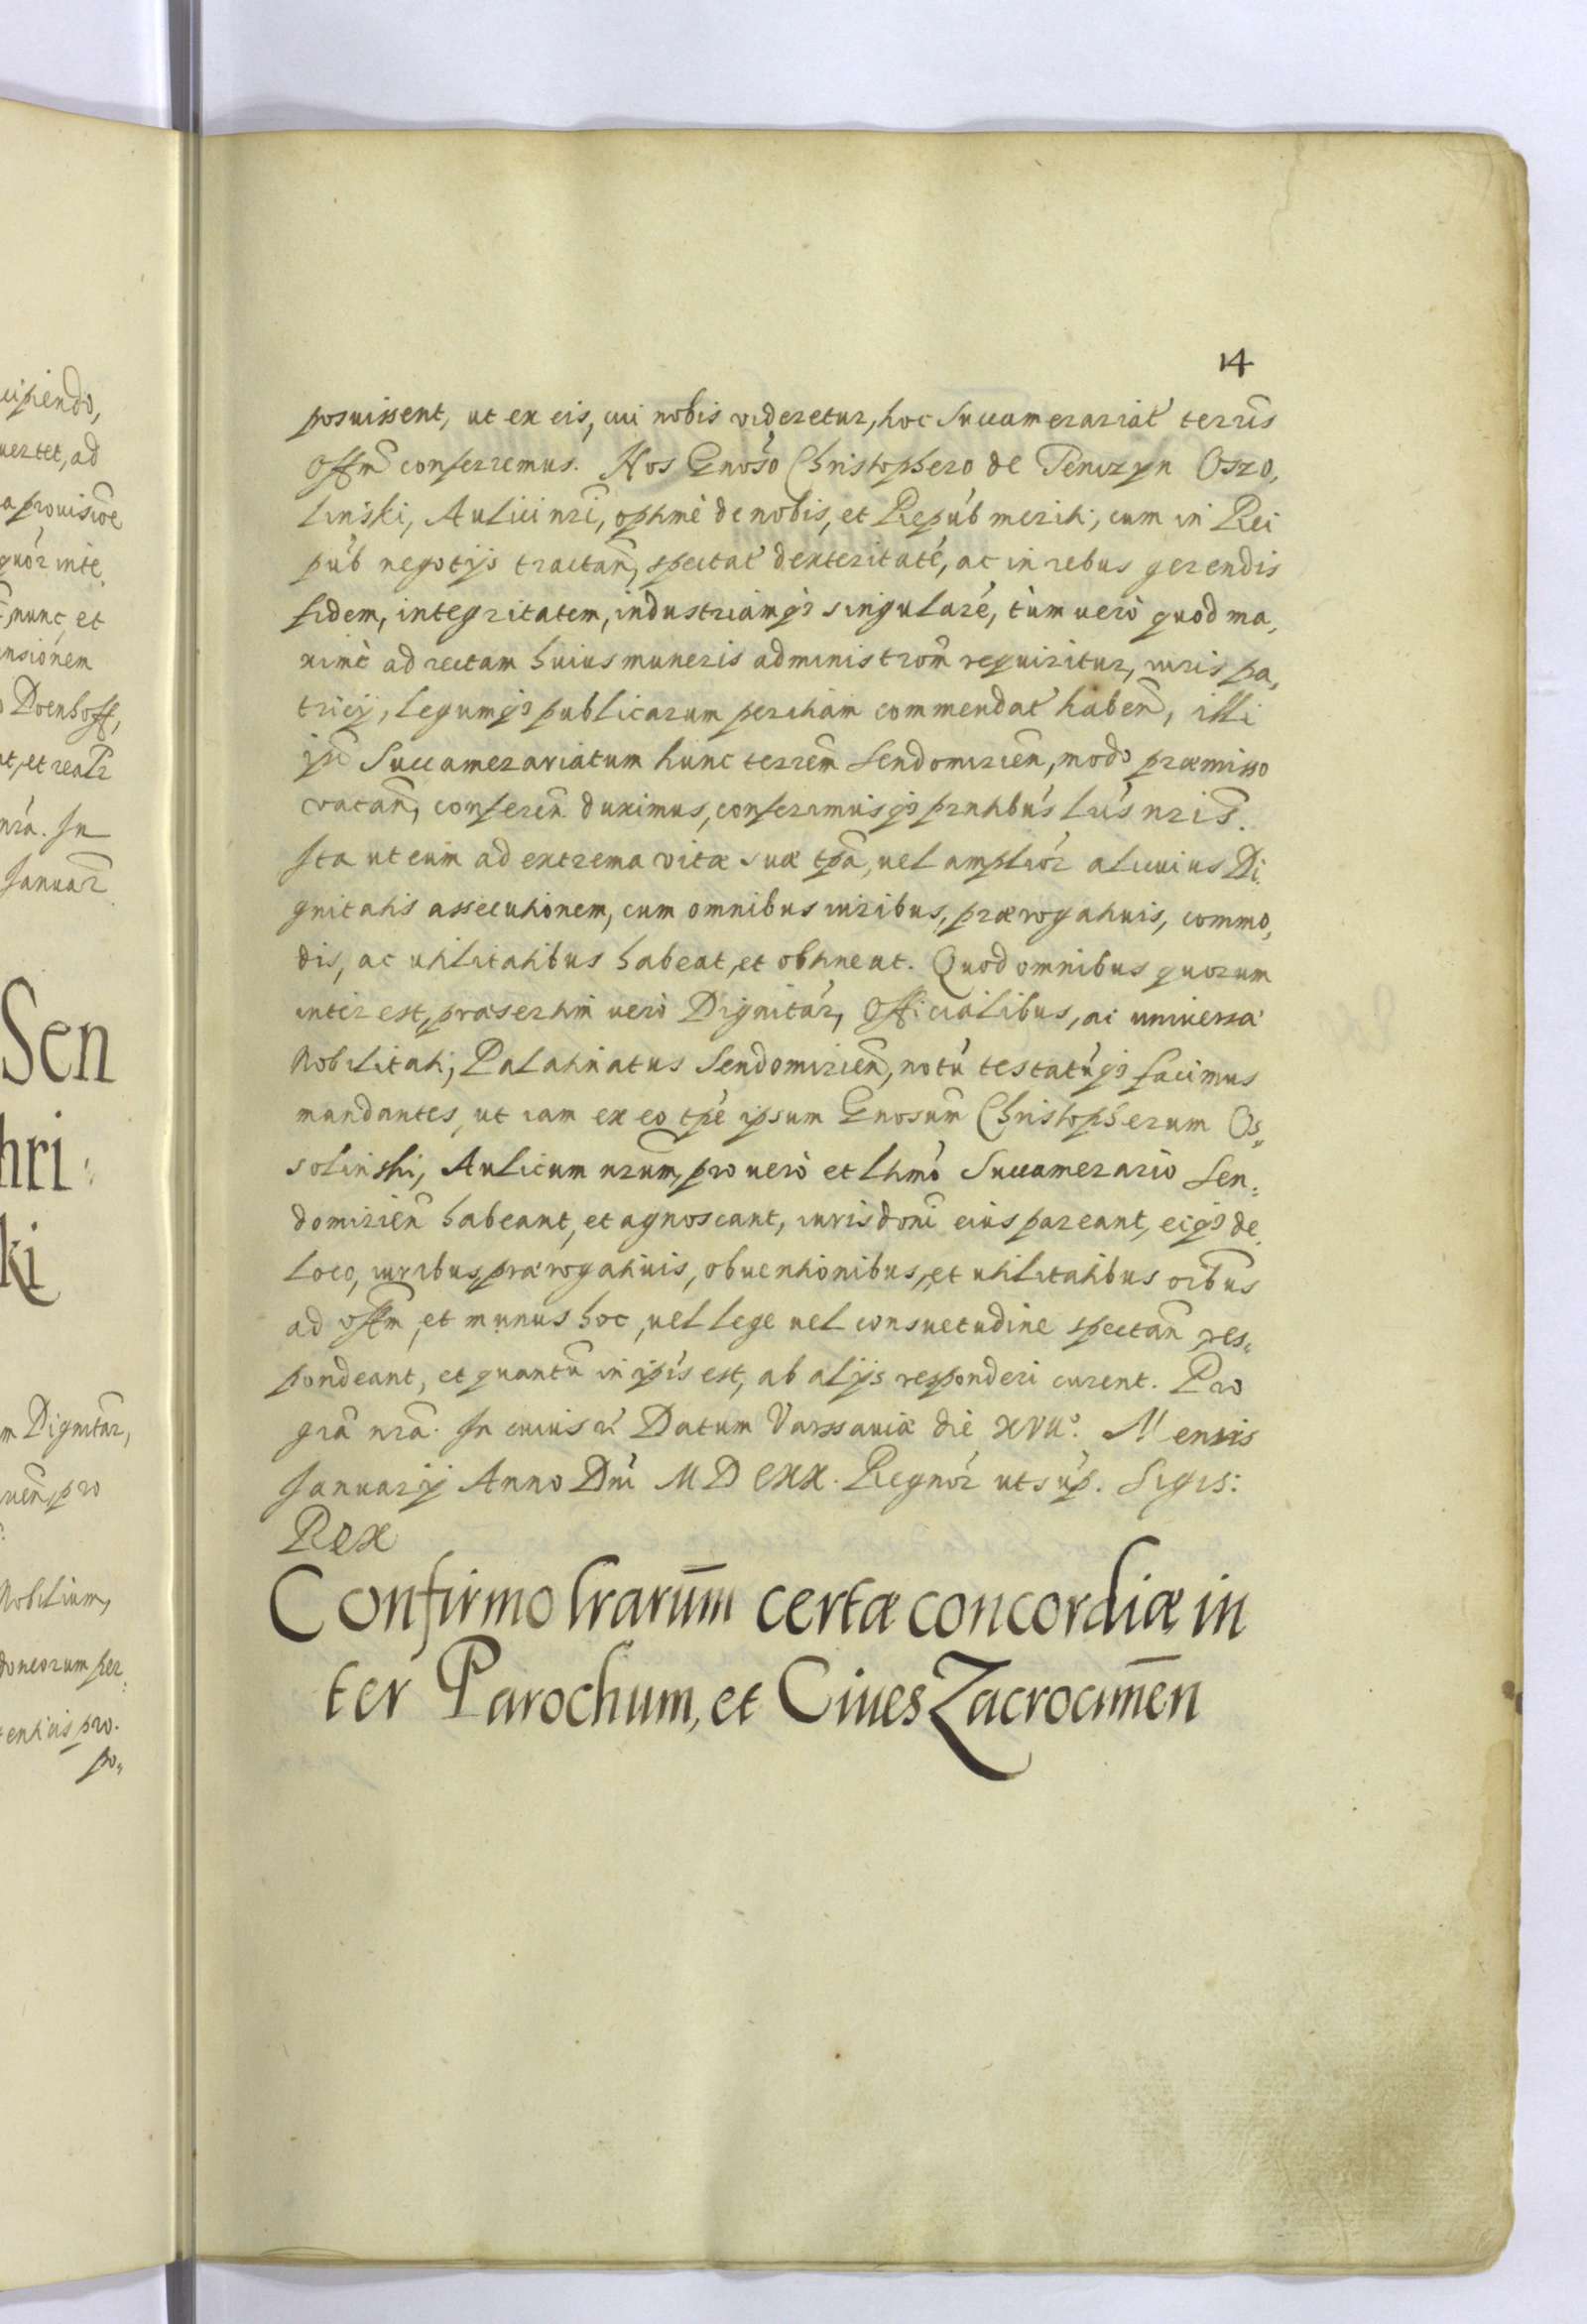 14
posuissent, ut ex eis, cui nobis videretur, hoc Succamerariat́ terrīs
Offm̄ conferremus. Nos Gnośo Christophero de Tenczyn Oszo,
linski, Aulici nrī, optimè de nobis, et Repúb meriti, cum in Rei
púb negotijs tractan̄, spectat́ dexteritaté, ac in rebus gerendis
fidem, integritatem, industriamq3 singularé, tùm uerò quod ma,
ximè ad rectam huius muneris administrom̄ requiritur, iuris pa,
tricij, legumq3 publicarum peritiam commendat́ haben̄, illi
ips̄ Succamerariatum hunc terrem̄ Sendomirien̄, modo præmisso
vacan̄, conferen̄ duximus, conferimusq3 prntibús lrís nrīs.
Ita ut eum ad extrema vitæ suæ tp̄a, uel amplior̀ alicuius Di.
gnitatis assecutionem, cum omnibus iuribus, prærogatiuis, commo,
dis, ac utilitatibus habeat, et obtineat. Quod omnibus quorum
interest, præsertim uerò Dignitár, Officialibus, ac uniuersa
Nobilitati, Palatinatus Sendomirien̄, notú testatúq3 facimus
mandantes, ut iam ex eo tpé ipsum Gnosum̄ Christopherum Os„
solinski, Aulicum nrum̄, pro uerò et ltimò Succamerario Sen:
domirien̄ habeant, et agnoscant, iurisdonī eius pareant, eiq3 de
loco, iuribus, prærogatiuis, obuentionibus, et utilitatibus oībus
ad offm̄, et munus hoc, uel lege uel consuetudine spectan̄ res„
pondeant, et quantū in ipís est, ab alijs responderi curent. Pro
grā nrā. In cuius rī Datum Varssauiæ die XVIIº. Mensis
Januarij Anno Dnī M D CXX. Regnór ut súp. Sigis:
Rex
Confirmo lrarūm certæ concordiæ in
ter Parochum, et Ciues Zacrocimēn